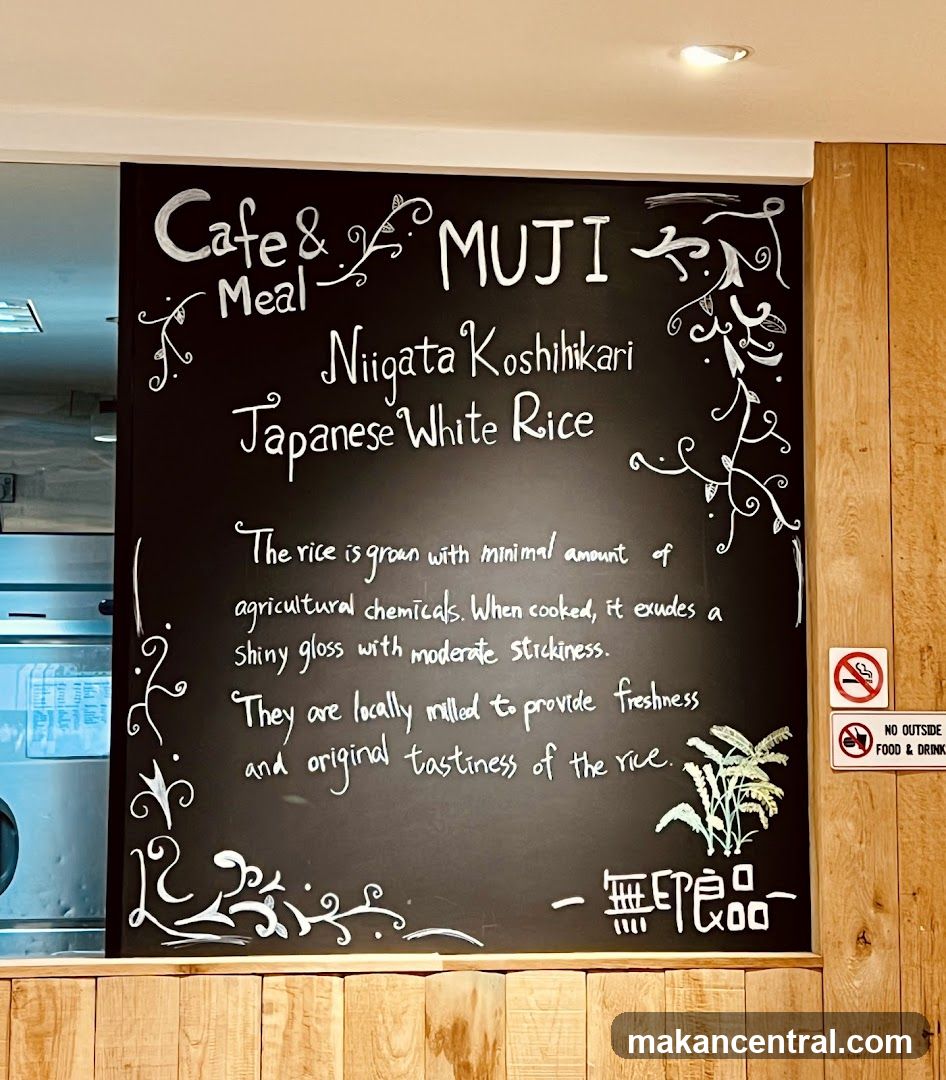 Cafe &
Meal
MUJI
Niigata Koshihikari
Japanese White Rice
The rice is grown with minimal amount of
agricultural chemicals. When cooked, it exudes a
shiny gloss with moderate stickiness.
They are locally milled to provide freshness
and original tastiness of the rice.
NO OUTSIDE
FOOD & DRINK
- 無印良品 -
makancentral.com